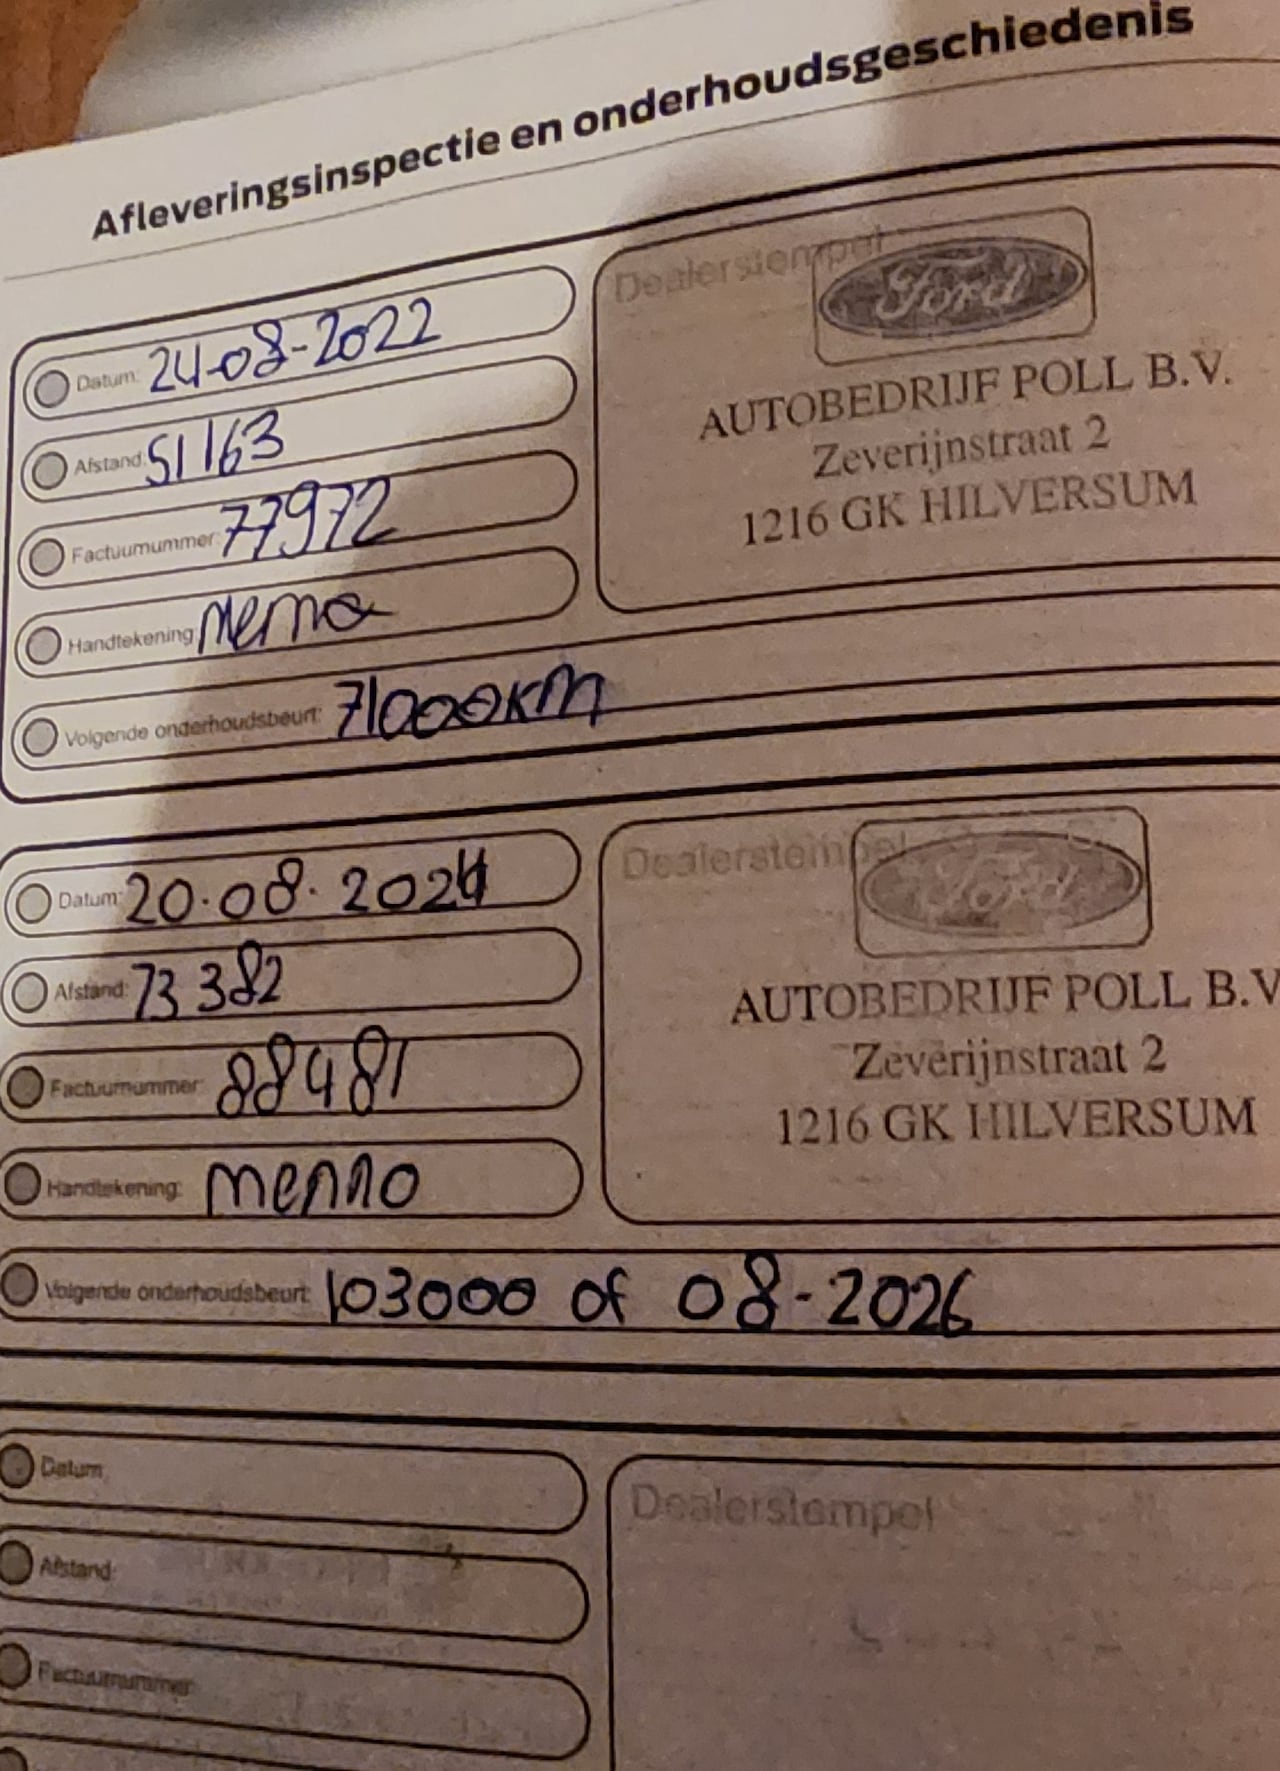 Afleveringsinspectie en onderhoudsgeschiedenis
Datum: 24-08-2022
Afstand: 51163
Factuurnummer: 77972
Handtekening: Menno
Volgende onderhoudsbeurt: 71000KM
Dealerstempel
Ford
AUTOBEDRIJF POLL B.V.
Zeverijnstraat 2
1216 GK HILVERSUM
Datum: 20.08.2024
Afstand: 73382
Factuurnummer: 88481
Handtekening: menno
Volgende onderhoudsbeurt: 103000 of 08-2026
Dealerstempel
Ford
AUTOBEDRIJF POLL B.V
Zeverijnstraat 2
1216 GK HILVERSUM
Datum:
Afstand:
Factuurnummer:
Dealerstempel